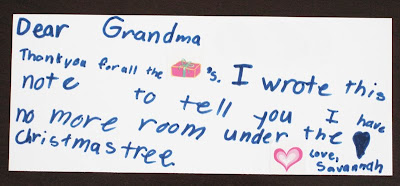 Dear Grandma
Thankyou for all the 's. I wrote this
note to tell you I have
no more room under the
christmastree.
Love,
Savannah